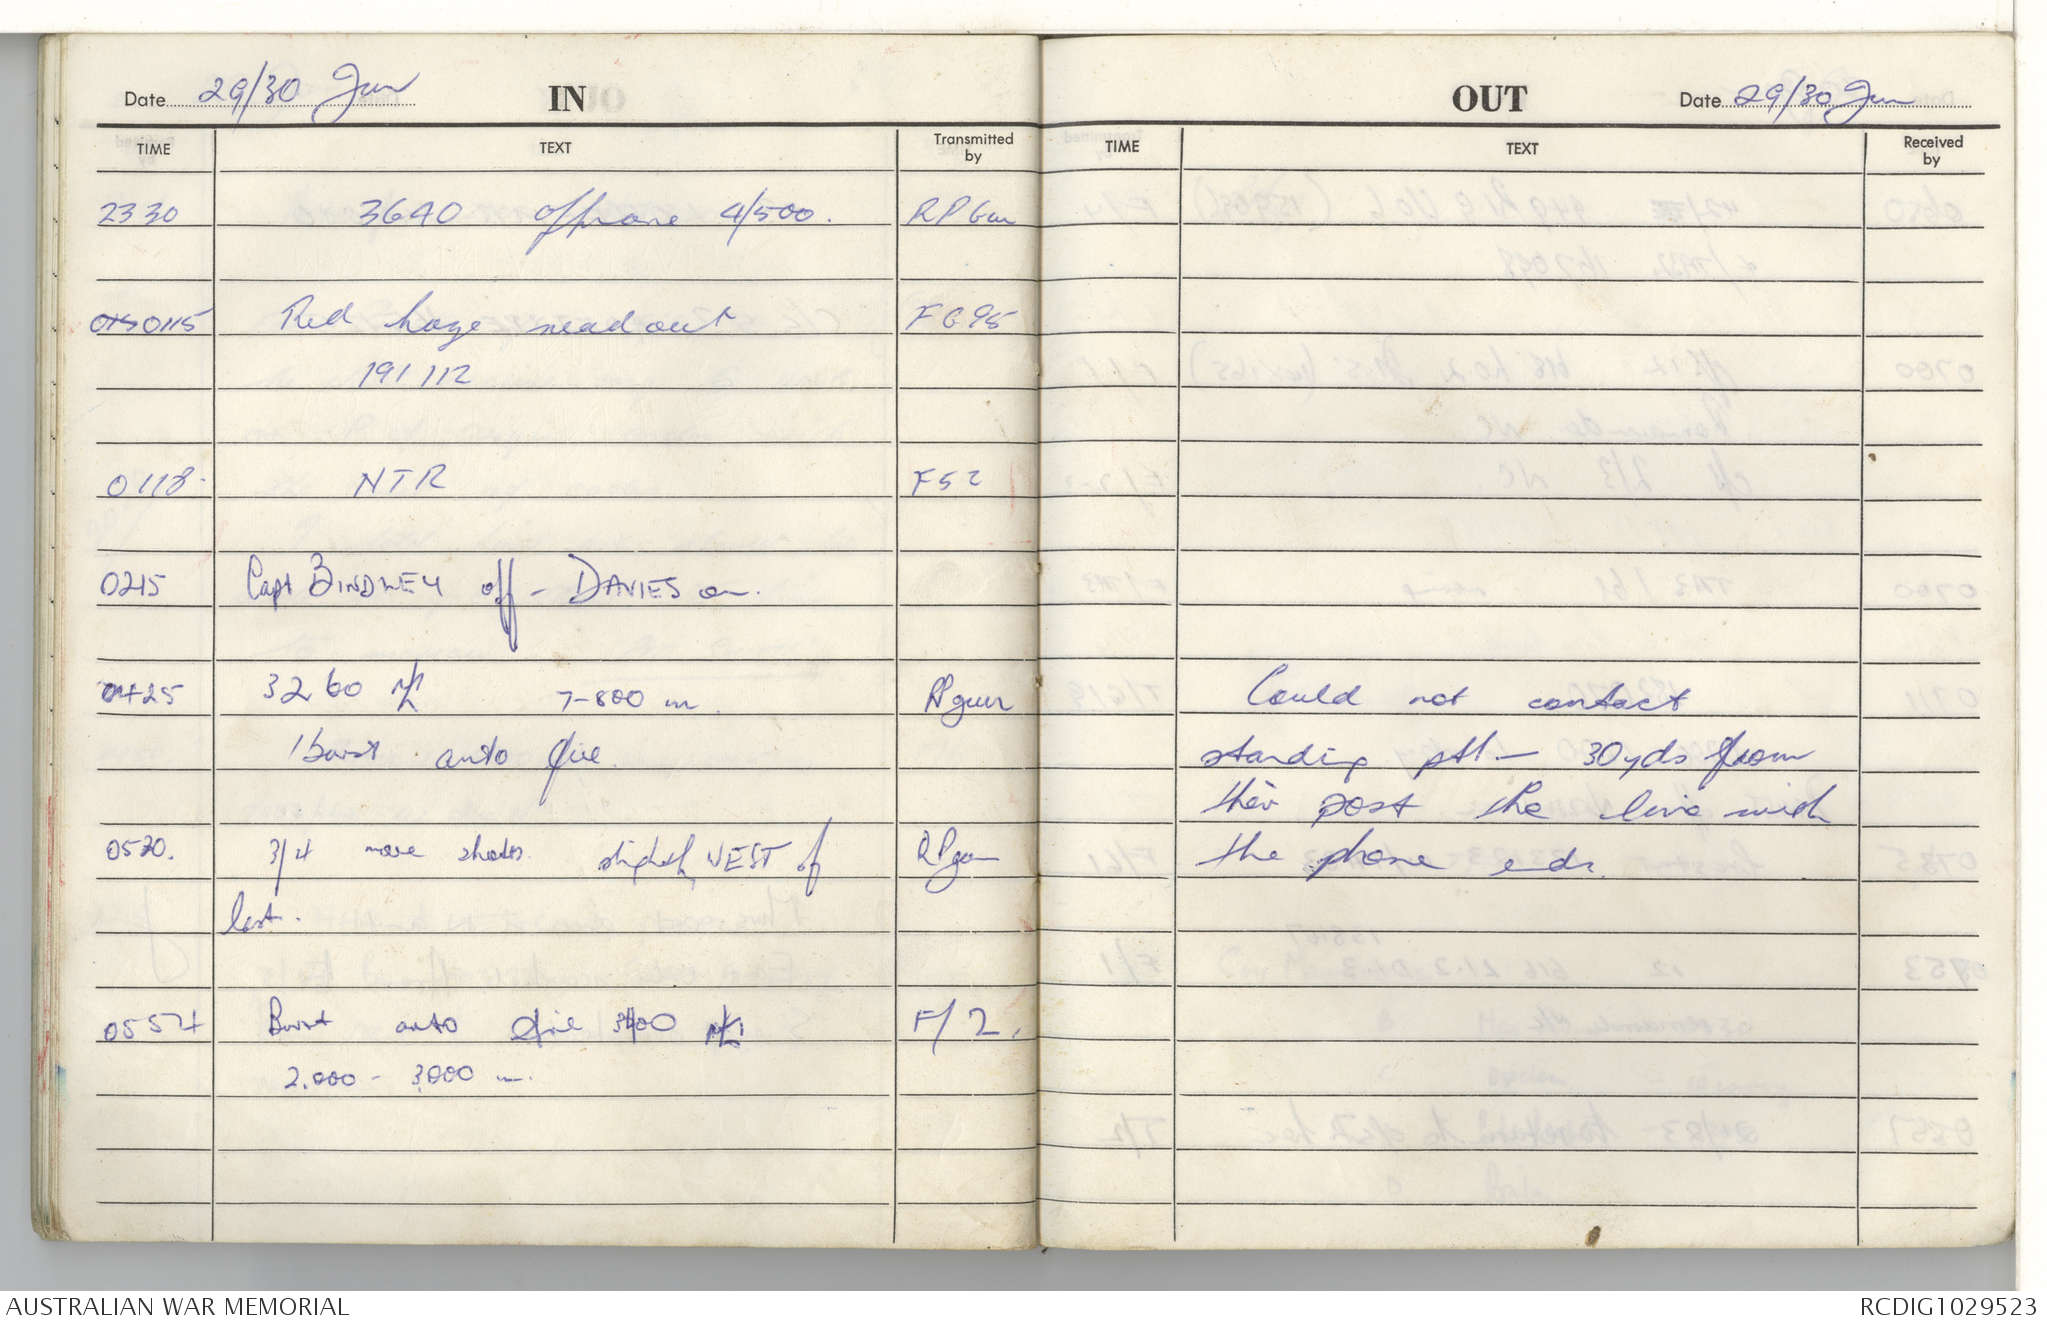 Date 29/30 Jun IN
TIME TEXT Transmitted by
2330 3640 4/500. RPGun
0115 Red haze readout FG95
191 112
0118. NTR F52
0215 Capt BINDLEY off - DAVIES on.
0425 3260 7-800 m RPgun
1 burst auto fire.
0520. 3/4 more shots slightly WEST of RPgun
last.
0554 Burst auto fire F/2.
2,000 - 3,000 m.
OUT Date 29/30 Jun
TIME TEXT Received by
Could not contact
standing ptl - 30yds from
their post the line with
the phone ends.
AUSTRALIAN WAR MEMORIAL RCDIG1029523